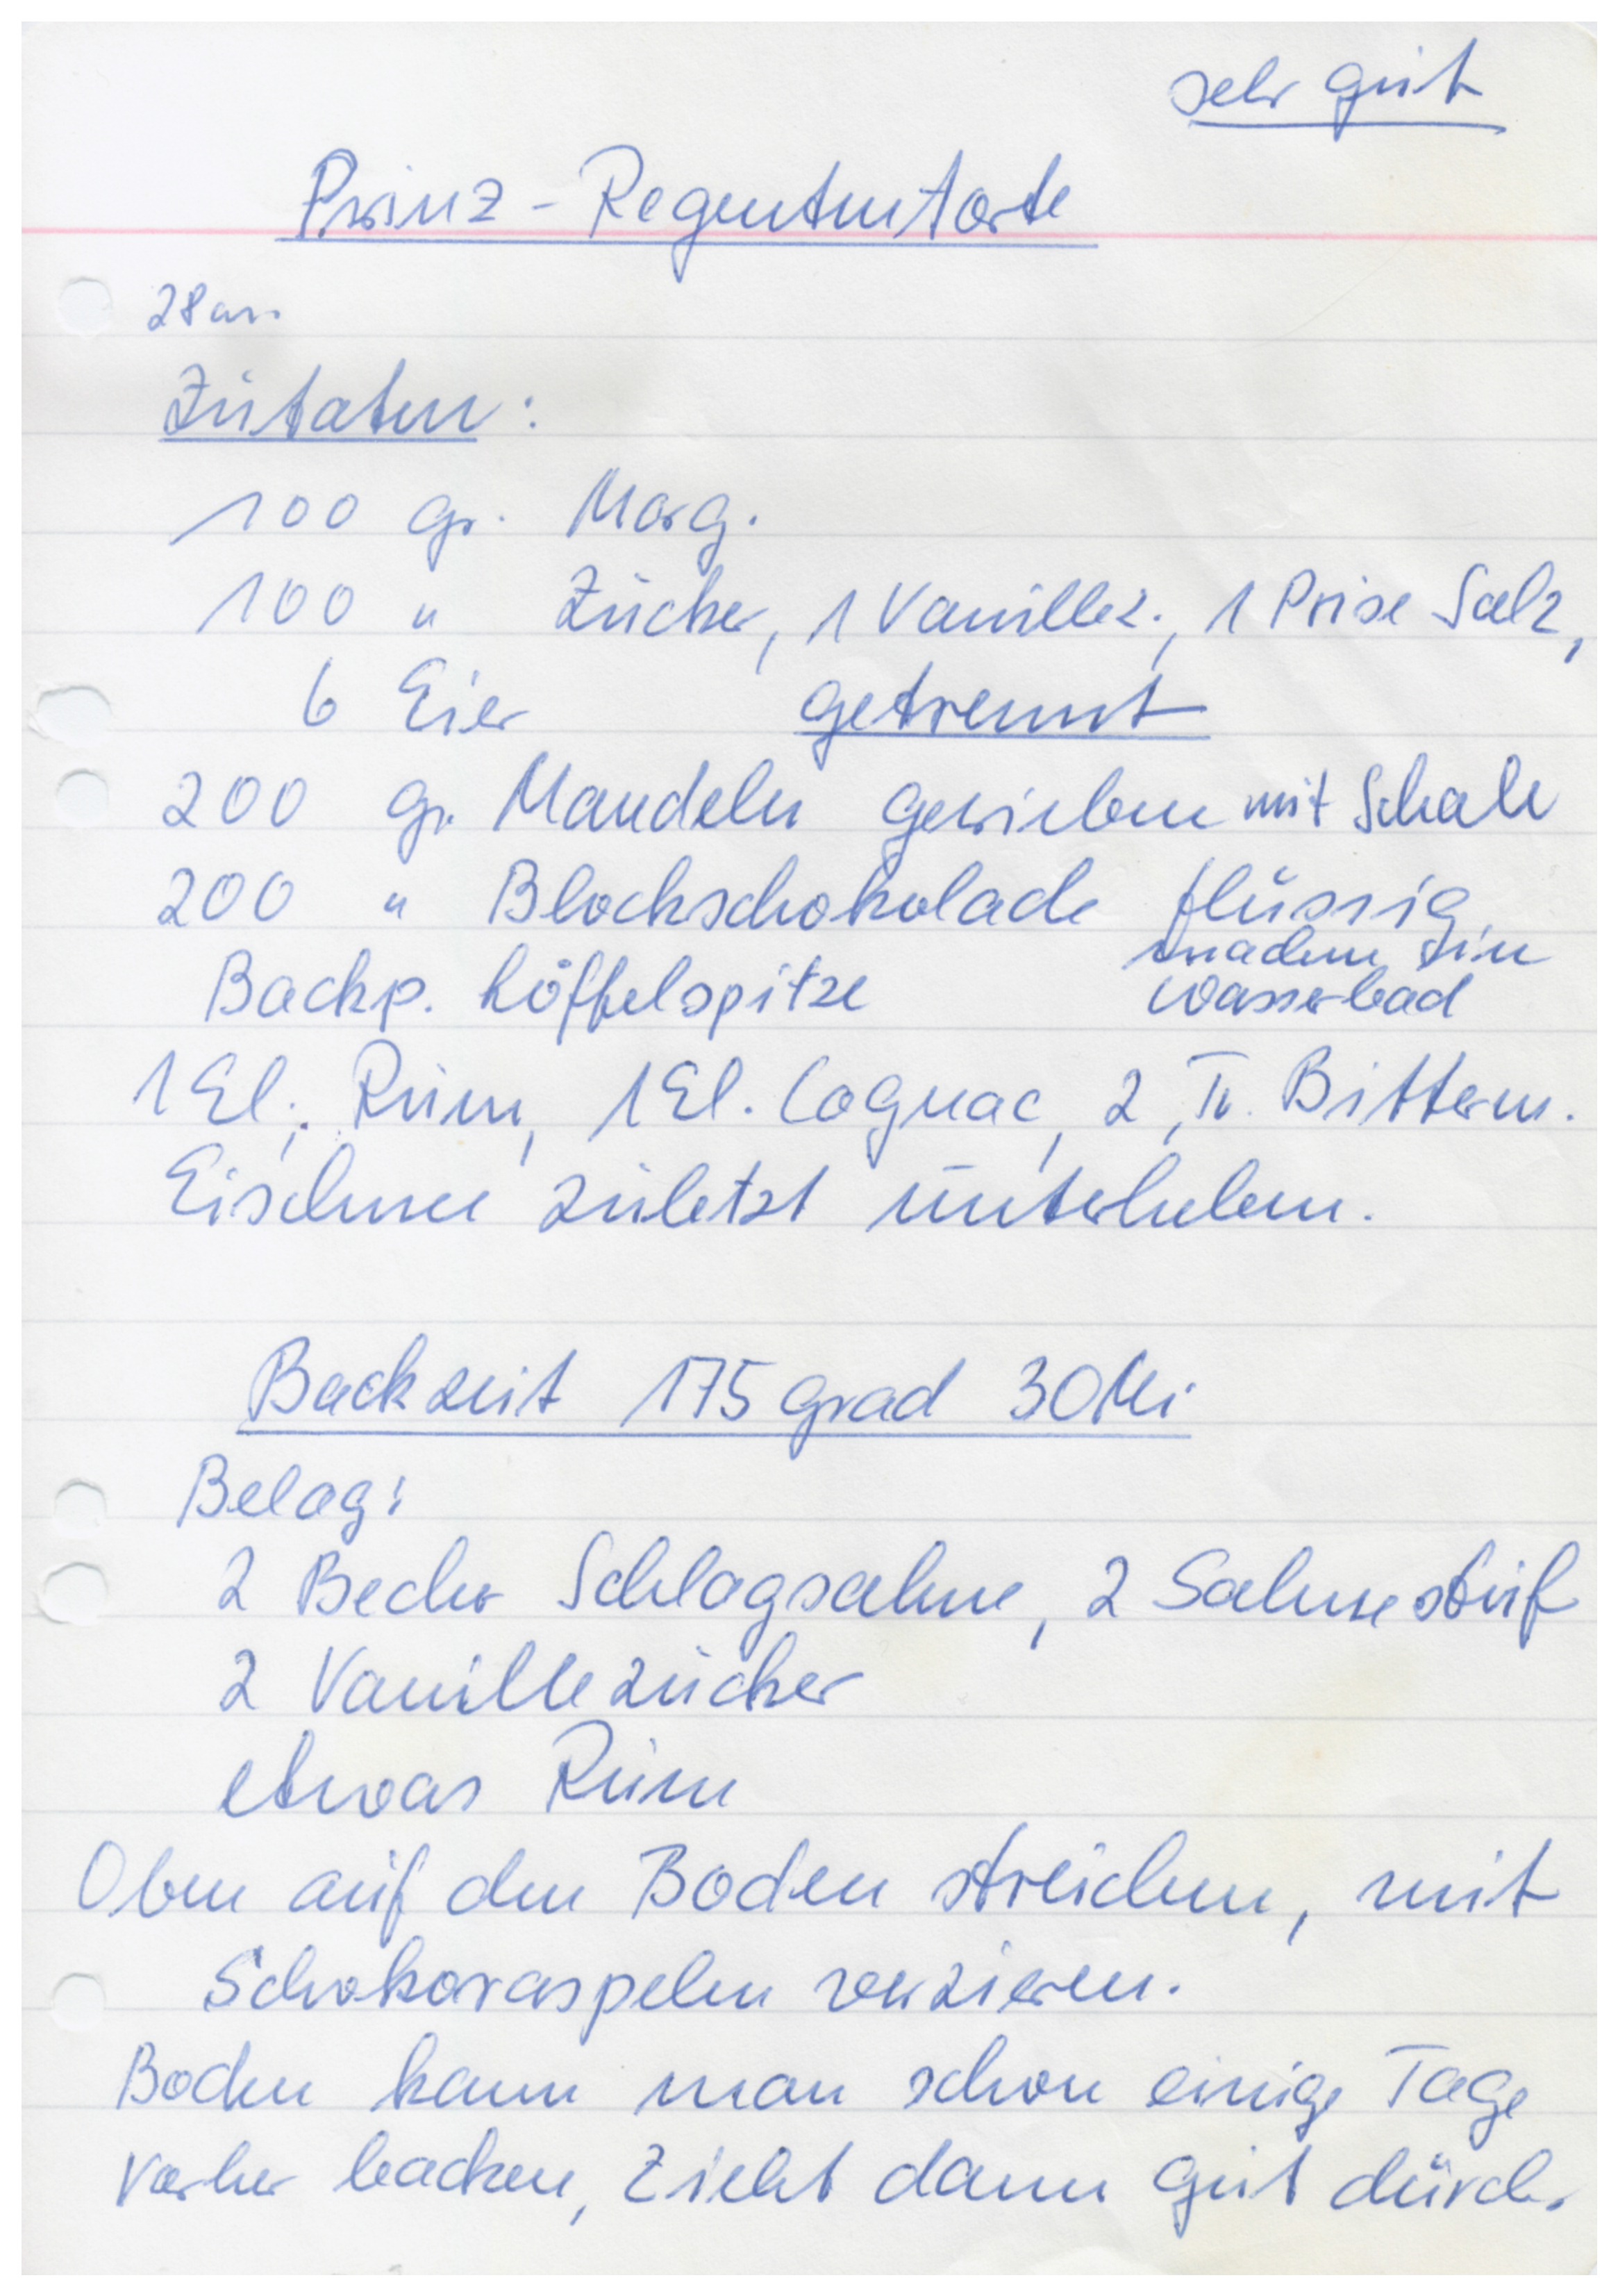 sehr gut
Prinz-Regententorte
28 cm
Zutaten:
100 gr. Marg.
100 " Zucker, 1 Vanillez., 1 Prise Salz,
6 Eier getrennt
200 gr. Mandeln gerieben mit Schale
200 " Blockschokolade flüssig
machen im
Backp. Löffelspitze Wasserbad
1 El. Rum, 1 El. Cognac, 2 Tr. Bitterm.
Eischnee zuletzt unterheben.
Backzeit 175 grad 30 Mi
Belag:
2 Becher Schlagsahne, 2 Sahnesteif
2 Vanillezucker
etwas Rum
Oben auf den Boden streichen, mit
Schokoraspeln verzieren.
Boden kann man schon einige Tage
vorher backen, zieht dann gut durch.